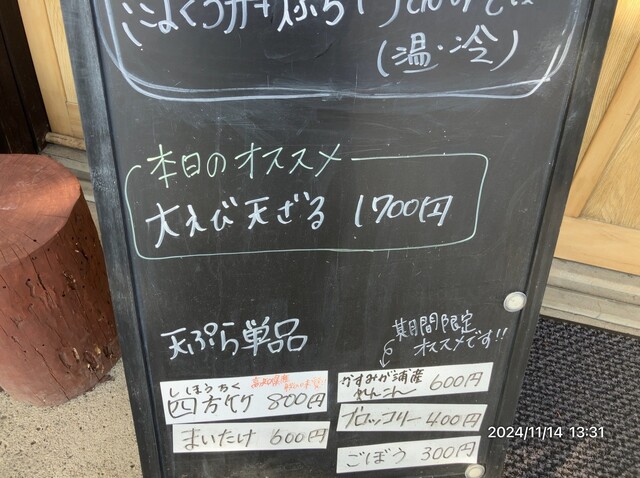 (温・冷)
本日のオススメ
大えび天ざる 1700円
天ぷら単品
期間限定
オススメです!!
しほうちく
四方竹 800円
まいたけ 600円
かすみが浦産
れんこん 600円
ブロッコリー 400円
ごぼう 300円
2024/11/14 13:31